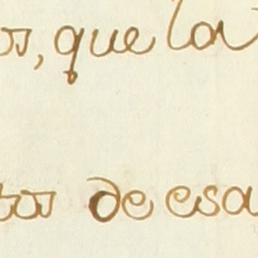 os, que la
tos de esa